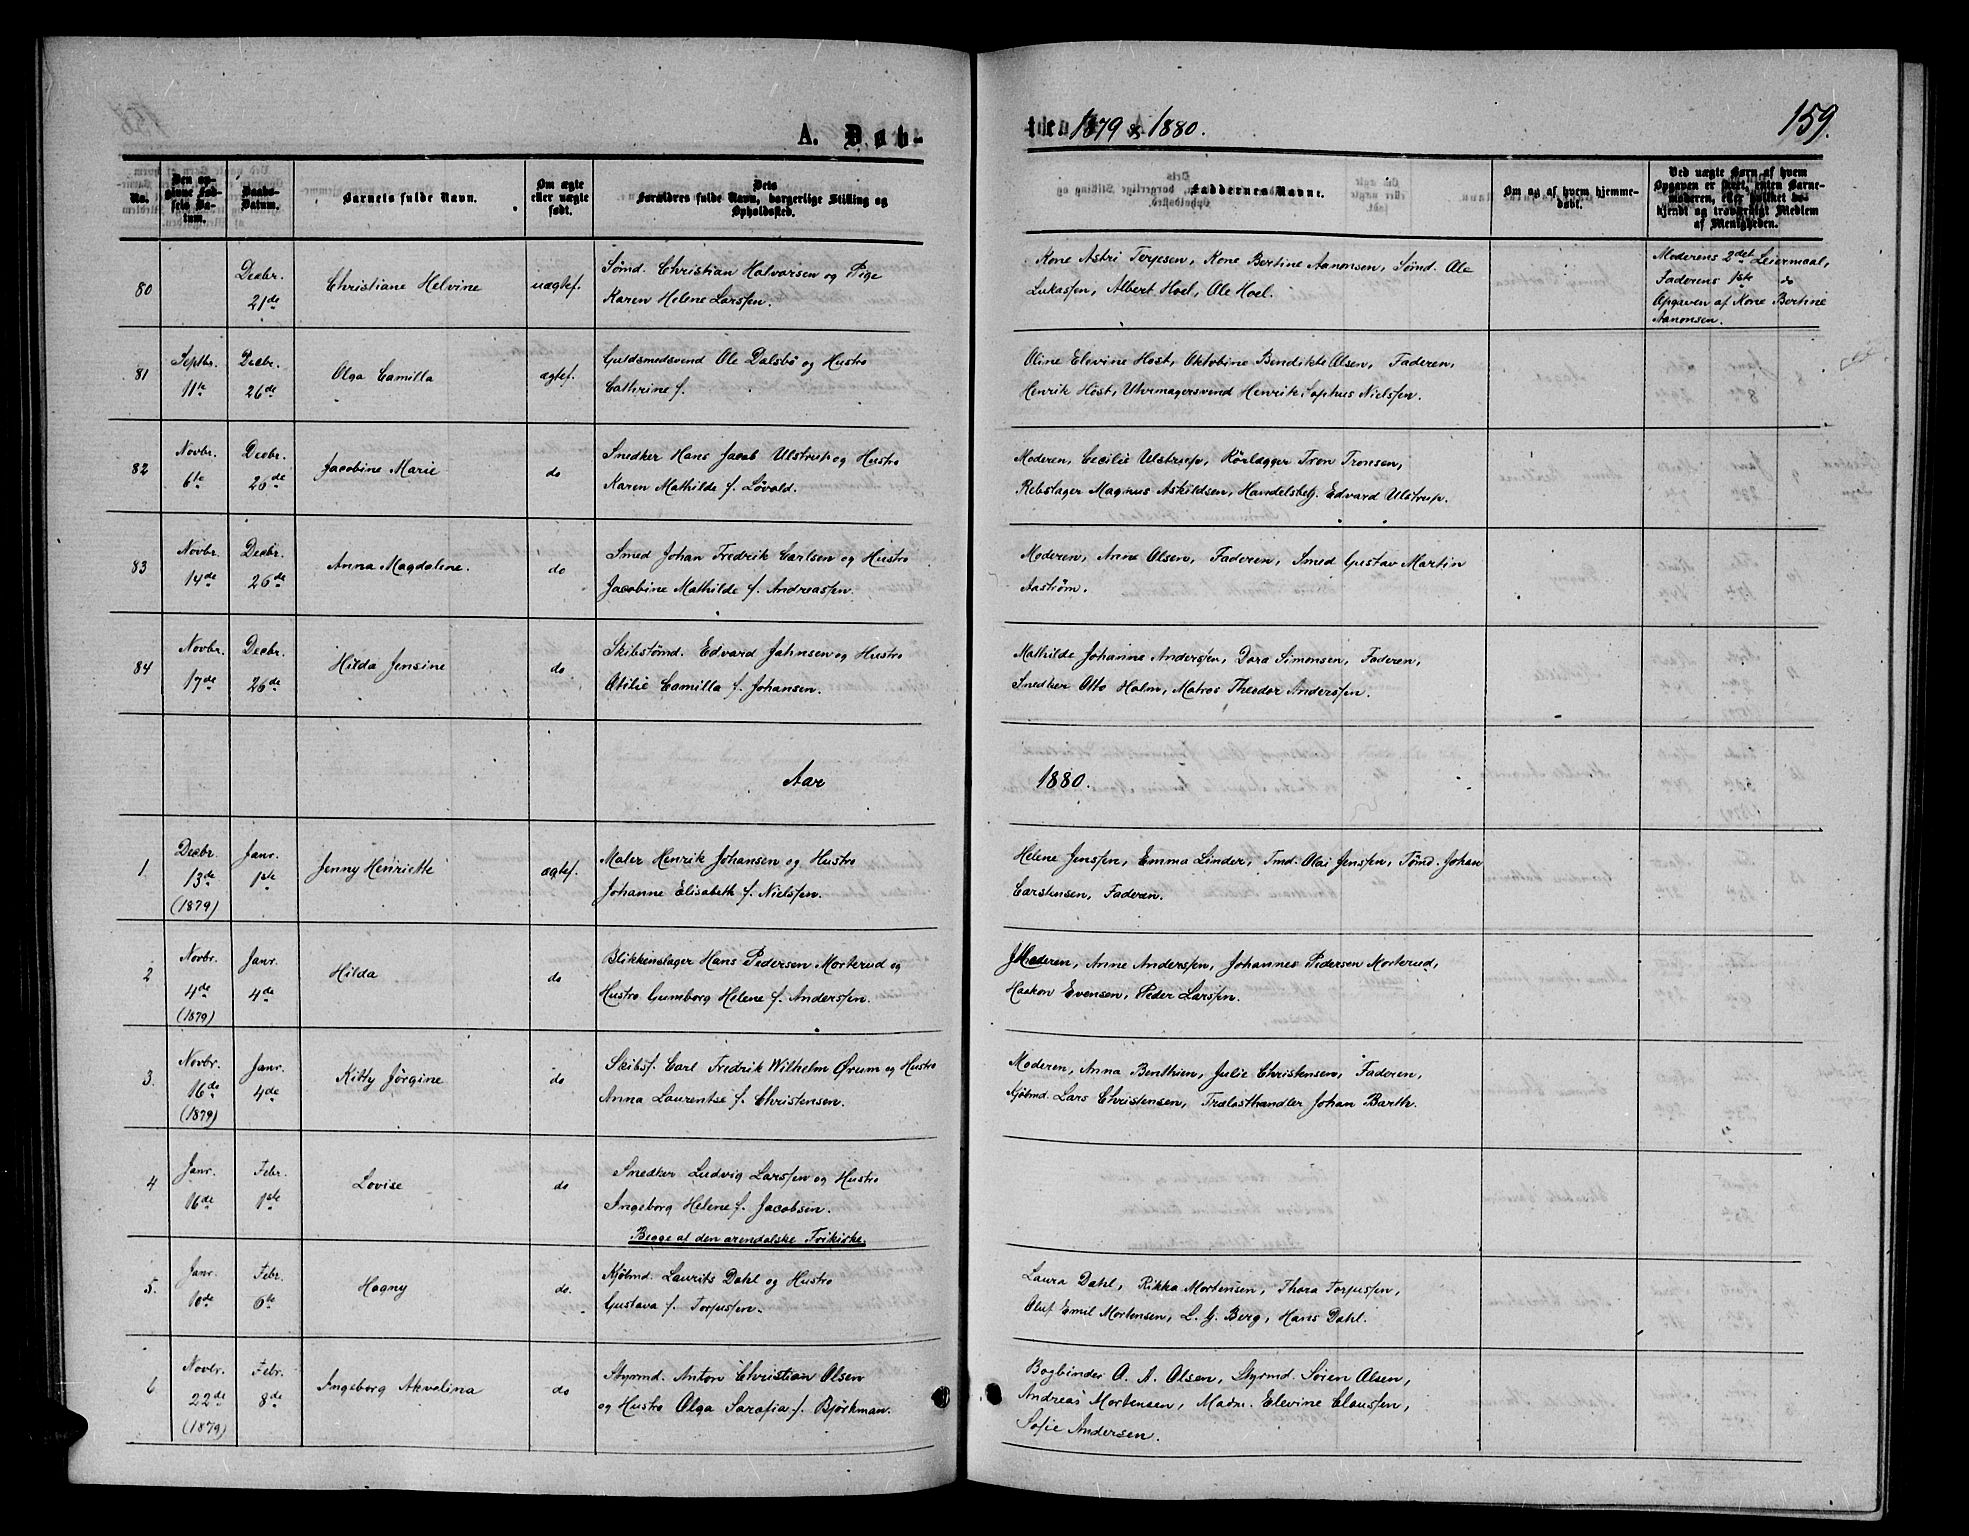 A. Døb-
te i 1879 & 1880.
159.
No.
Den op-
givne Fød-
sels Da-
tum.
Daabs-
Datum.
Barnets fulde Navn.
Om ægte
eller uægte
født.
Dets
Forældres fulde Navn, borgerlige Stilling og
Opholdssted.
Faddernes Navne.
Om og af hvem hjemme-
døbt.
Ved uægte Børn af hvem
Opgaven er skeet, enten Barne-
moderen, eller hvilket be-
kjendt og troværdigt Medlem
af Menigheden.
80
Decbr.
21de
Christiane Helvine
uægtef.
Sømd. Christian Halvorsen og Pige
Karen Helene Larssen.
Kone Astri Terjesen, Kone Bertine Aanonsen, Sømd. Ole
Lukassen, Albert Hoel, Ole Hoel.
Moderens 2det Leiermaal,
Faderens 1ste do
Opgaven af Kone Bertine
Aanonsen.
81
Septbr.
11te
Decbr.
26de
Olga Camilla
ægtef.
Guldsmedsvend Ole Dalsbö og Hustro
Cathrine f.
Oline Elevine Høst, Oktobine Bendikte Olsen, Faderen,
Henrik Höst, Uhrmagersvend Henrik Sophus Nielssen.
82
Novbr.
6te
Decbr.
26de
Jacobine Marie
do
Snedker Hans Jacob Ulstrup og Hustro
Karen Mathilde f. Lövold.
Moderen, Cecilie Ulstrup, Rörlægger Tron Tronsen,
Rebslager Magnus Askildsen, Handelsbetj. Edvard Ulstrup.
83
Novbr.
14de
Decbr.
26de
Anna Magdalene.
do
Smed Johan Fredrik Carlsen og Hustro
Jacobine Mathilde f. Andreassen.
Moderen, Anne Olsen, Faderen, Smed Gustav Martin
Aastrøm.
84
Novbr.
17de
Decbr.
26de
Hilda Jensine
do
Skibstømd. Edvard Jahnsen og Hustro
Otilie Camilla f. Johansen.
Mathilde Johanne Anderssen, Dora Simonsen, Faderen,
Snedker Otto Holm, Matros Theodor Anderssen.
Aar 1880.
1
Decbr.
13de
(1879)
Janr.
1ste
Jenny Henriette
ægtef.
Maler Henrik Johansen og Hustro
Johanne Elisabeth f. Nielssen.
Helene Jenssen, Emma Linder, Tmd. Olai Jenssen, Tömd. Johan
Carstensen, Faderen.
2
Novbr.
4de
(1879)
Janr.
4de
Hilda
do
Blikkenslager Hans Pedersen Morterud og
Hustro Gumborg Helene f. Anderssen.
Moderen, Anne Anderssen, Johannes Pedersen Morterud,
Haakon Evensen, Peder Larssen.
3.
Novbr.
16de
(1879)
Janr.
4de
Kitty Jörgine
do
Skibsf. Carl Fredrik Wilhelm Ørum og Hustro
Anna Laurentse f. Christensen.
Moderen, Anna Benthien, Julie Christensen, Faderen,
Kjöbmd. Lars Christensen, Trælasthandler Johan Barth.
4
Janr.
16de
Febr.
1ste
Lovise
do
Snedker Ludvig Larssen og Hustro
Ingeborg Helene f. Jacobsen.
Begge af den arendalske Frikirke.
5.
Janr.
10de
Febr.
6te
Hagny
do.
Kjöbmd. Laurits Dahl og Hustro
Gustava f. Torjussen.
Laura Dahl, Rikka Mortensen, Thora Torjussen,
Oluf Emil Mortensen, L. G. Berg, Hans Dahl.
6
Novbr.
22de
(1879)
Febr.
8de
Ingeborg Akvalina
do
Styrmd. Anton Christian Olsen
og Hustro Olga Sarafia f. Björkman.
Bogbinder O. A. Olsen, Styrmd. Sören Olsen,
Andreas Mortensen, Madm. Elevine Claussen,
Sofie Andersen.